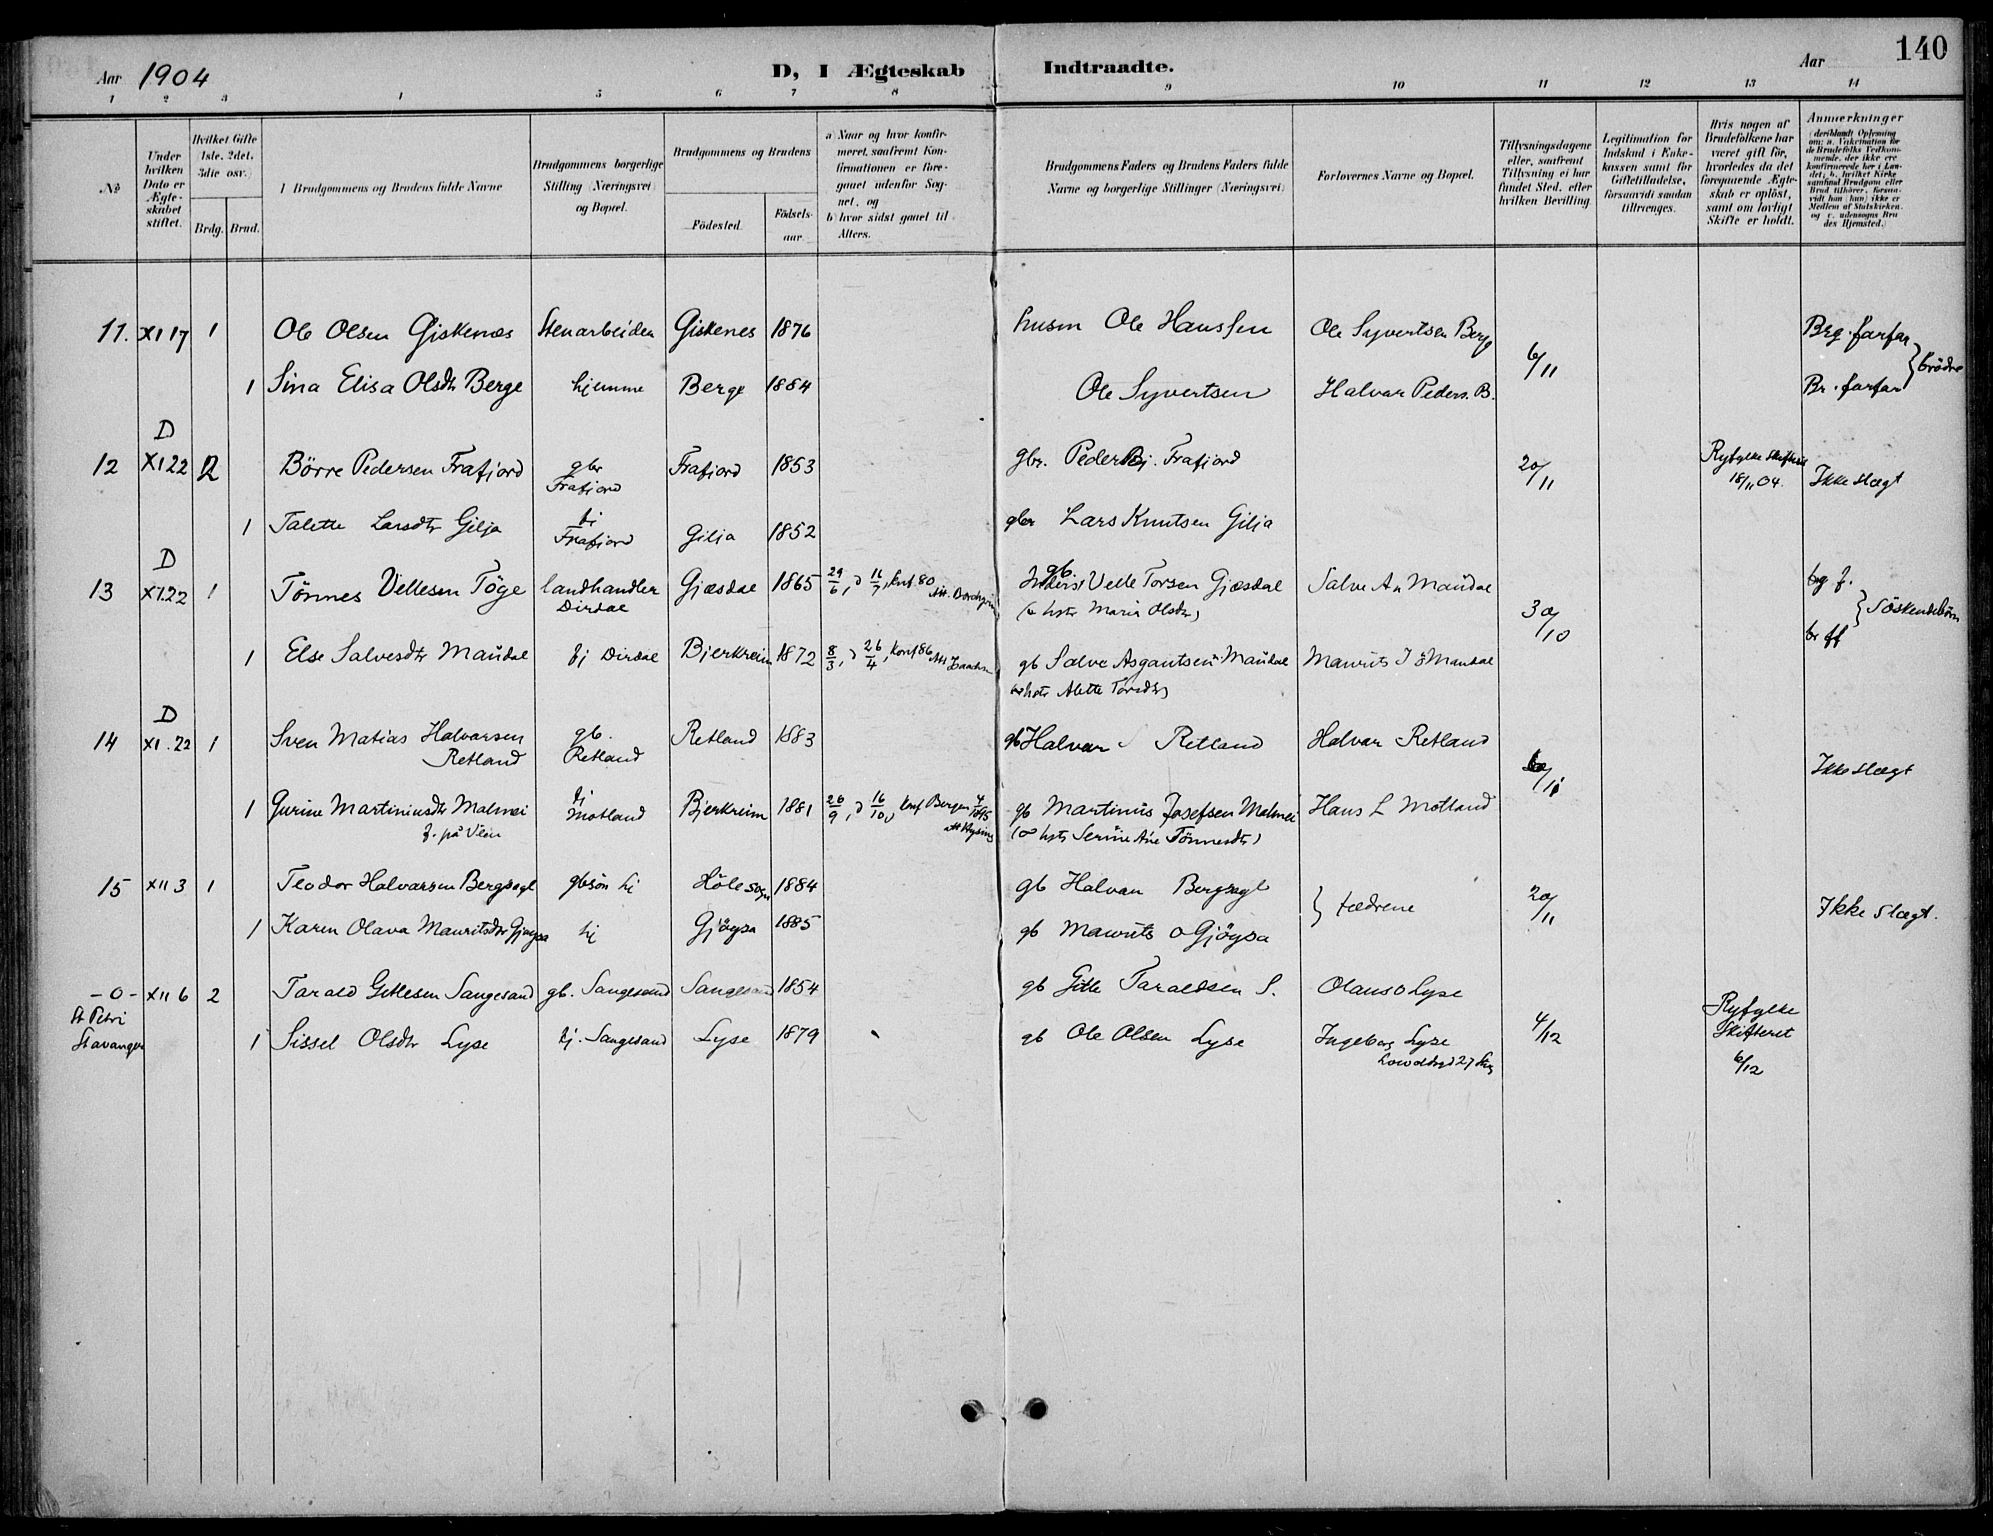 Aar 1904 D, I Ægteskab Indtraadte. Aar 140
1 2 3 4 5 6 7 8 9 10 11 12 13 14
No
Under hvilken Dato er Ægteskabet stiftet.
Hvilket Gifte (1ste, 2det, 3die osv.)
Brdg. Brud.
Brudgommens og Brudens fulde Navne
Brudgommens borgerlige Stilling (Næringsvei) og Bopæl.
Brudgommens og Brudens
Fødested. Fødselsaar.
a) Naar og hvor konfirmeret, saafremt Konfirmationen er foregaaet udenfor Sognet, og
b) hvor sidst gaaet til Alters.
Brudgommens Faders og Brudens Faders fulde Navne og borgerlige Stillinger (Næringsvei)
Forlovernes Navne og Bopæl.
Tillysningsdagene eller, saafremt Tillysning ei har fundet Sted, efter hvilken Bevilling.
Legitimation for Indskud i Enkekassen samt for Giftetilladelse, forsaavidt saadan tiltrænges.
Hvis nogen af Brudefolkene har været gift før, hvorledes da det foregaaende Ægteskab er opløst, samt om lovligt Skifte er holdt.
Anmerkninger (deriblandt Oplysning om: a. Vakcination for de Brudefolks Vedkommende, der ikke ere konfirmerede her i Landet; b. hvilket Kirkesamfund Brudgom eller Brud tilhører, forsaavidt han (hun) ikke er Medlem af Statskirken, og c. udensogns Brudes Hjemsted.)
11. XI 17 1 Ole Olsen Giskenæs Stenarbeider Giskenes 1876 husm Ole Hanssen Ole Syvertsen Berg 6/11 Brg. farfar
1 Sina Elisa Olsdtr Berge hjemme Berge 1884 Ole Syvertsen Halvar Peders. B. Br. farfar } brödre
D
12 XI 22 2 Börre Pedersen Frafjord gbr Frafjord Frafjord 1853 gbr. Peder Bj. Frafjord 20/11 Ryfylke Skifteret 18/11 04. Ikke slægt
1 Talette Larsdtr Gilja hj Frafjord Gilja 1852 gbr Lars Knutsen Gilja
D
13 XI.22 1 Tönnes Vellesen Töge landhandler Dirdal Gjæsdal 1865 29/6, d 16/7, konf 80 gb Velle Torsen Gjæsdal Salve A Maudal 30/10 brg f.
(o hstr Maria Olsdtr)
1 Else Salvesdtr Maudal hj Dirdal Bjerkreim 1872 8/3, d 26/4, konf 86 gb Salve Asgautsen Maudal Maurits Maudal br ff } Söskendebörn
hstr Alette Torsdtr)
D
14 XI.22 1 Sven Matias Halvarsen Retland gb. Retland Retland 1883 gb Halvar Retland Halvar Retland Ikke slægt
1 Gurine Martiniusdtr Malmei hj Motland Bjerkreim 1881 26/9, d 16/10, konf Bergen gb Martinius Josefsen Malmei Hans L Motland
f. på Veen (o hstr Serine Ane Tönnesdtr)
15 XII 3 1 Teodor Halvarsen Bergsagl gbsön hj Höle sogn 1884 gb Halvar Bergsagl 20/11 Ikke slægt.
1 Karen Olava Mauritsdtr Gjöysa hj Gjöysa 1885 gb Maurits O Gjöysa } fædrene
-0- XII 6 2 Tarald Gitlesen Sangesand gb. Sangesand Sangesand 1854 gb Gitle Taraldsen S. Olaus O Lyse Ryfylke Skifteret 6/12
St Petri Stavanger
1 Sissel Olsdtr Lyse hj. Sangesand Lyse 1879 gb Ole Olsen Lyse Ingeborg Lyse 4/12